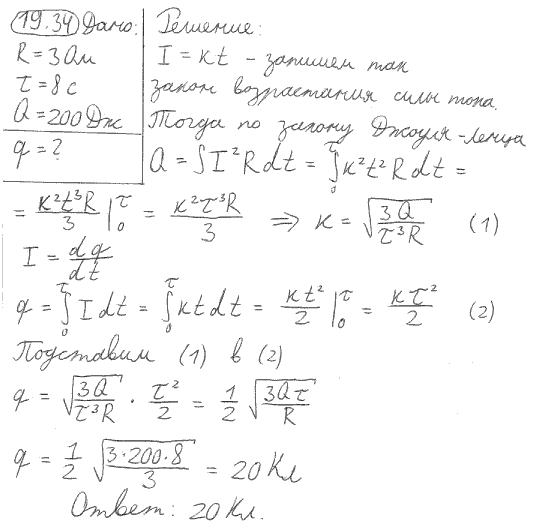 19.34 Дано:
R = 3 Ом
τ = 8 c
Q = 200 Дж
q = ?
Решение:
I = кt - запишем так
закон возрастания силы тока.
Тогда по закону Джоуля-Ленца
Q = ∫I²Rdt = ∫₀^τ к²t²Rdt =
= к²t³R/3 |₀^τ = к²τ³R/3 ⇒ к = √(3Q/τ³R) (1)
I = dq/dt
q = ∫₀^τ Idt = ∫₀^τ кtdt = кt²/2 |₀^τ = кτ²/2 (2)
Подставим (1) в (2)
q = √(3Q/τ³R) · τ²/2 = 1/2 √(3Qτ/R)
q = 1/2 √(3·200·8/3) = 20 Кл
Ответ: 20 Кл.